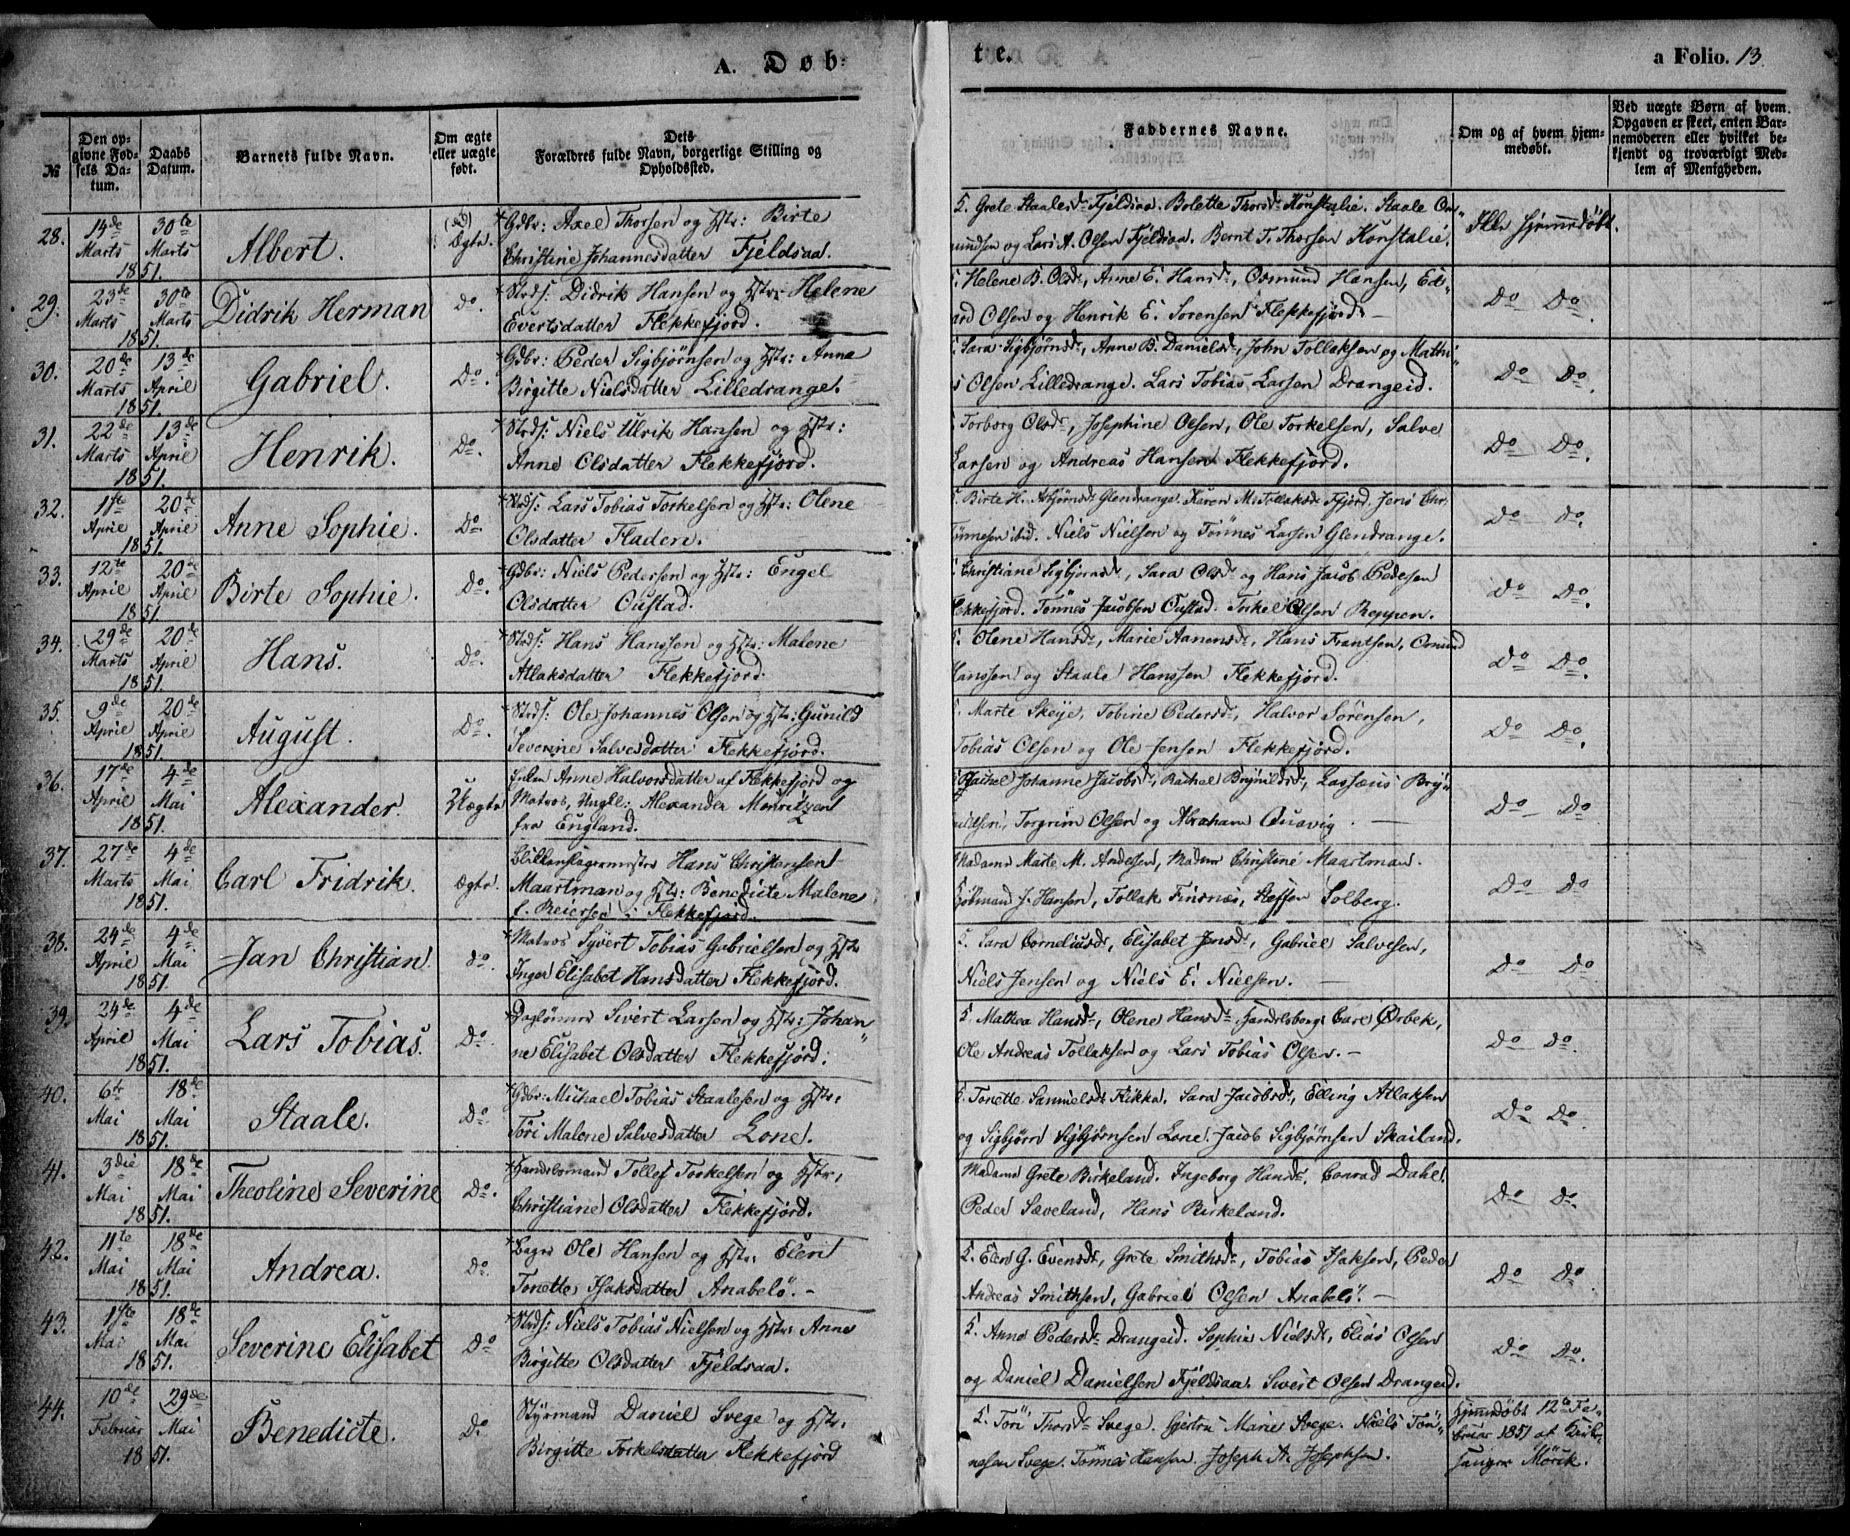 A. Døb-
te.
a Folio. 13.
№
Den op-
givne Fød-
sels Da-
tum.
Daabs
Datum.
Barnets fulde Navn.
Om ægte
eller uægte
født.
Dets
Forældres fulde Navn, borgerlige Stilling og
Opholdssted.
Faddernes Navne.
Om og af hvem hjem-
medøbt.
Ved uægte Børn af hvem
Opgaven er skeet, enten Bar-
nemoderen eller hvilket be-
kjendt og troværdigt Med-
lem af Menigheden.
28.
14de
Marts
1851.
30te
Marts
Albert.
Ægte.
Gdbr: Axel Thorsen og Hstr: Birte
Christine Johannesdatter Fjeldsaa.
Grete Staalesdr Fjeldsaa. Bolette Thorsdr Konstalie. Staale Os-
mundsen og Lars A. Olsen Fjeldsaa. Bernt T. Thorsen Konstalie.
Ikke hjemmedøbt.
29.
23de
Marts
1851.
30te
Marts
Didrik Herman
Do.
Strds: Didrik Hansen og Hstr: Helene
Evertsdatter Flekkefjord.
Helene B. Olsdr, Anne E. Hansdr, Osmund Hansen, Ed-
ard Olsen og Henrik E. Sørensen Flekkefjord. —
Do Do.
30.
20de
Marts
1851.
13de
April
Gabriel.
Do.
Gdbr: Peder Sigbjørnsen og Hstr: Anne
Birgitte Nielsdatter Lilledrange.
Sara Sigbjørnsdr, Anne B. Danielsdr, John Tollaksen og Mathi-
s Olsen Lilledrange. Lars Tobias Larsen Drangeid.
Do Do.
31.
22de
Marts
1851.
13de
April
Henrik.
Do.
Strds: Niels Ulrik Hansen og Hstr:
Anne Olsdatter Flekkefjord.
Torborg Olsdr, Josephine Olsen, Ole Torkelsen, Salve
Larsen og Andreas Hansen Flekkefjord.
Do Do.
32.
1ste
April
1851.
20de
April
Anne Sophie.
Do.
Strds: Lars Tobias Torkelsen og Hstr: Olene
Olsdatter Fladen.
Birte H. Asbjørnsdr Glendrange. Karen M. Tollaksdr Fjord. Jens Chr.
Tønnesen ibid. Niels Nielsen og Tønnes Larsen Glendrange.
Do Do.
33.
12te
April
1851.
20de
April
Birte Sophie.
Do.
Gdbr: Niels Pedersen og Hstr: Engel
Olsdatter Oustad.
Christiane Sigbjørnsdr, Sara Olsdr og Hans Jacob Pedersen
lekkefjord. Tønnes Jacobsen Oustad. Torkel Olsen Reppen.
Do Do.
34.
29de
Marts
1851.
20de
April
Hans.
Do.
Strds: Hans Hanssen og Hstr: Malene
Atlaksdatter Flekkefjord.
Olene Hansdr, Marie Aanensdr, Hans Frantsen, Osmund
Hanssen og Staale Hanssen Flekkefjord.
Do Do.
35.
9de
April
1851.
20de
April
August.
Do.
Strds: Ole Johannes Olsen og Hstr: Gunild
Severine Salvesdatter Flekkefjord.
Marte Skeije, Tobine Pedersdr, Halvor Sørensen,
Tobias Olsen og Ole Jensen Flekkefjord.
Do Do.
36.
17de
April
1851.
4de
Mai
Alexander.
Uægte
Enken Anne Halvorsdatter af Flekkefjord og
Matros, Ungkl: Alexander Mouritzen
fra England.
Rachel Johanne Jacobsdr, Rachel Brynildsdr, Lassæus Bry-
nildsen, Torgrim Olsen og Abraham Quavig. —
Do Do.
37.
27de
Marts
1851.
4de
Mai
Carl Fridrik.
Ægte.
Blikkenslagermester Hans Christensen
Maartman og Hstr: Benedicte Malene
f. Reiersen i Flekkefjord.
Madame Marte M. Andersen, Madame Christine Maartman.
Kjøbmand J. Hansen, Tollak Finsnes, Steffen Solberg.
Do Do
38.
24de
April
1851.
4de
Mai
Jan Christian.
do.
Matros Syvert Tobias Gabrielsen og Hstr
Inger Elisabet Hansdatter Flekkefjord.
Sara Corneliusdr, Elisabet Jensdr, Gabriel Salvesen,
Niels Jensen og Niels E. Nielsen. —
Do Do.
39.
24de
April
1851.
4de
Mai
Lars Tobias.
Do.
Daglønner Sivert Larsen og Hstr: Johan-
ne Elisabet Olsdatter Flekkefjord.
Mathea Hansdr, Olene Hansdr Handelsborger Carl Ørbek,
Ole Andreas Tollaksen og Lars Tobias Olsen. —
Do Do.
40.
6te
Mai
1851.
18de
Mai
Staale.
Do.
Gdbr: Michael Tobias Staalesen og Hstr,
Tori Malene Salvesdatter Lone.
Tonette Samuelsdr Flikka. Sara Jacobsdr, Elling Atlaksen
og Sigbjørn Sigbjørnsen Lone. Jacob Sigbjørnsen Skailand.
Do Do.
41.
3die
Mai
1851.
18de
Mai
Theoline Severine
Do.
Handelsmand Tollef Torkelsen og Hstr,
Christiane Olsdatter Flekkefjord.
Madame Grete Birkeland. Ingeborg Hansdr. Conrad Dahl.
Peder Sæveland, Hans Birkeland.
Do Do.
42.
11te
Mai
1851.
18de
Mai
Andrea.
Do.
Ole Hansen og Hstr, Elen
Tonette Isaksdatter Anabelø. —
Elen G. Evensdr, Grete Smithsdr, Tobias Isaksen, Peder
Andreas Smithsen, Gabriel Olsen Anabelø. —
Do Do.
43.
1ste
Mai
1851.
18de
Mai
Severine Elisabet
Do
Strds: Niels Tobias Nielsen og Hstr: Anne
Birgitte Olsdatter Fjeldsaa.
Anne Pedersdr Drangeid. Sophie Nielsdr, Elias Olsen
og Daniel Danielsen Fjeldsaa. Sivert Olsen Drangeid.
Do Do.
44.
10de
Februar
1851.
29de
Mai
Benedicte.
Do
Styrmand Daniel Svege og Hstr.
Birgitte Torkelsdatter Flekkefjord
Tori Thorsdr Svege. Gjertru Marie Svege. Niels Tøn-
nesen Svege. Tønnes Hansen. Joseph A. Josephsen.
Hjemmedøbt 12te Fe-
bruar 1851 af Kirke-
sanger Mørik.